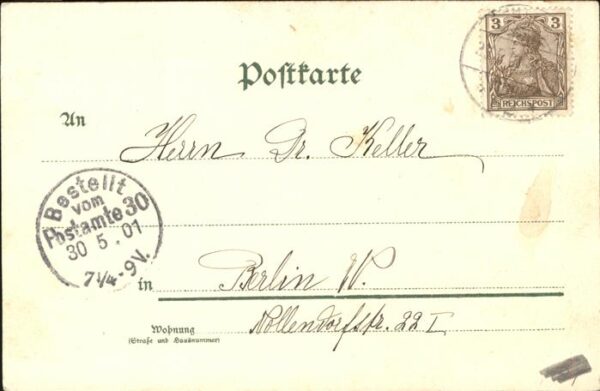 3 3
REICHSPOST
Postkarte
An
Herrn Dr. Keller
Bestellt
vom
Postamte 30
30 5. 01
7 1/4-9V.
in Berlin W.
Nollendorfstr. 22 I
Wohnung
(Straße und Hausnummer)